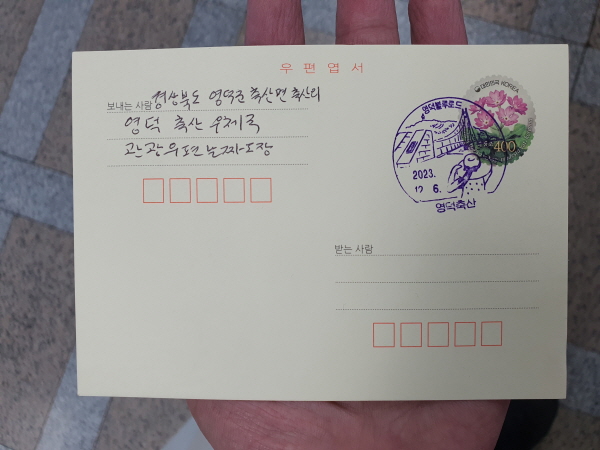 우편엽서
보내는 사람 경상북도 영덕군 축산면 축산리
영덕 축산 우체국
관광우편날짜도장
대한민국 KOREA
400
영덕블루로드
2023.
12 6.
영덕축산
받는 사람